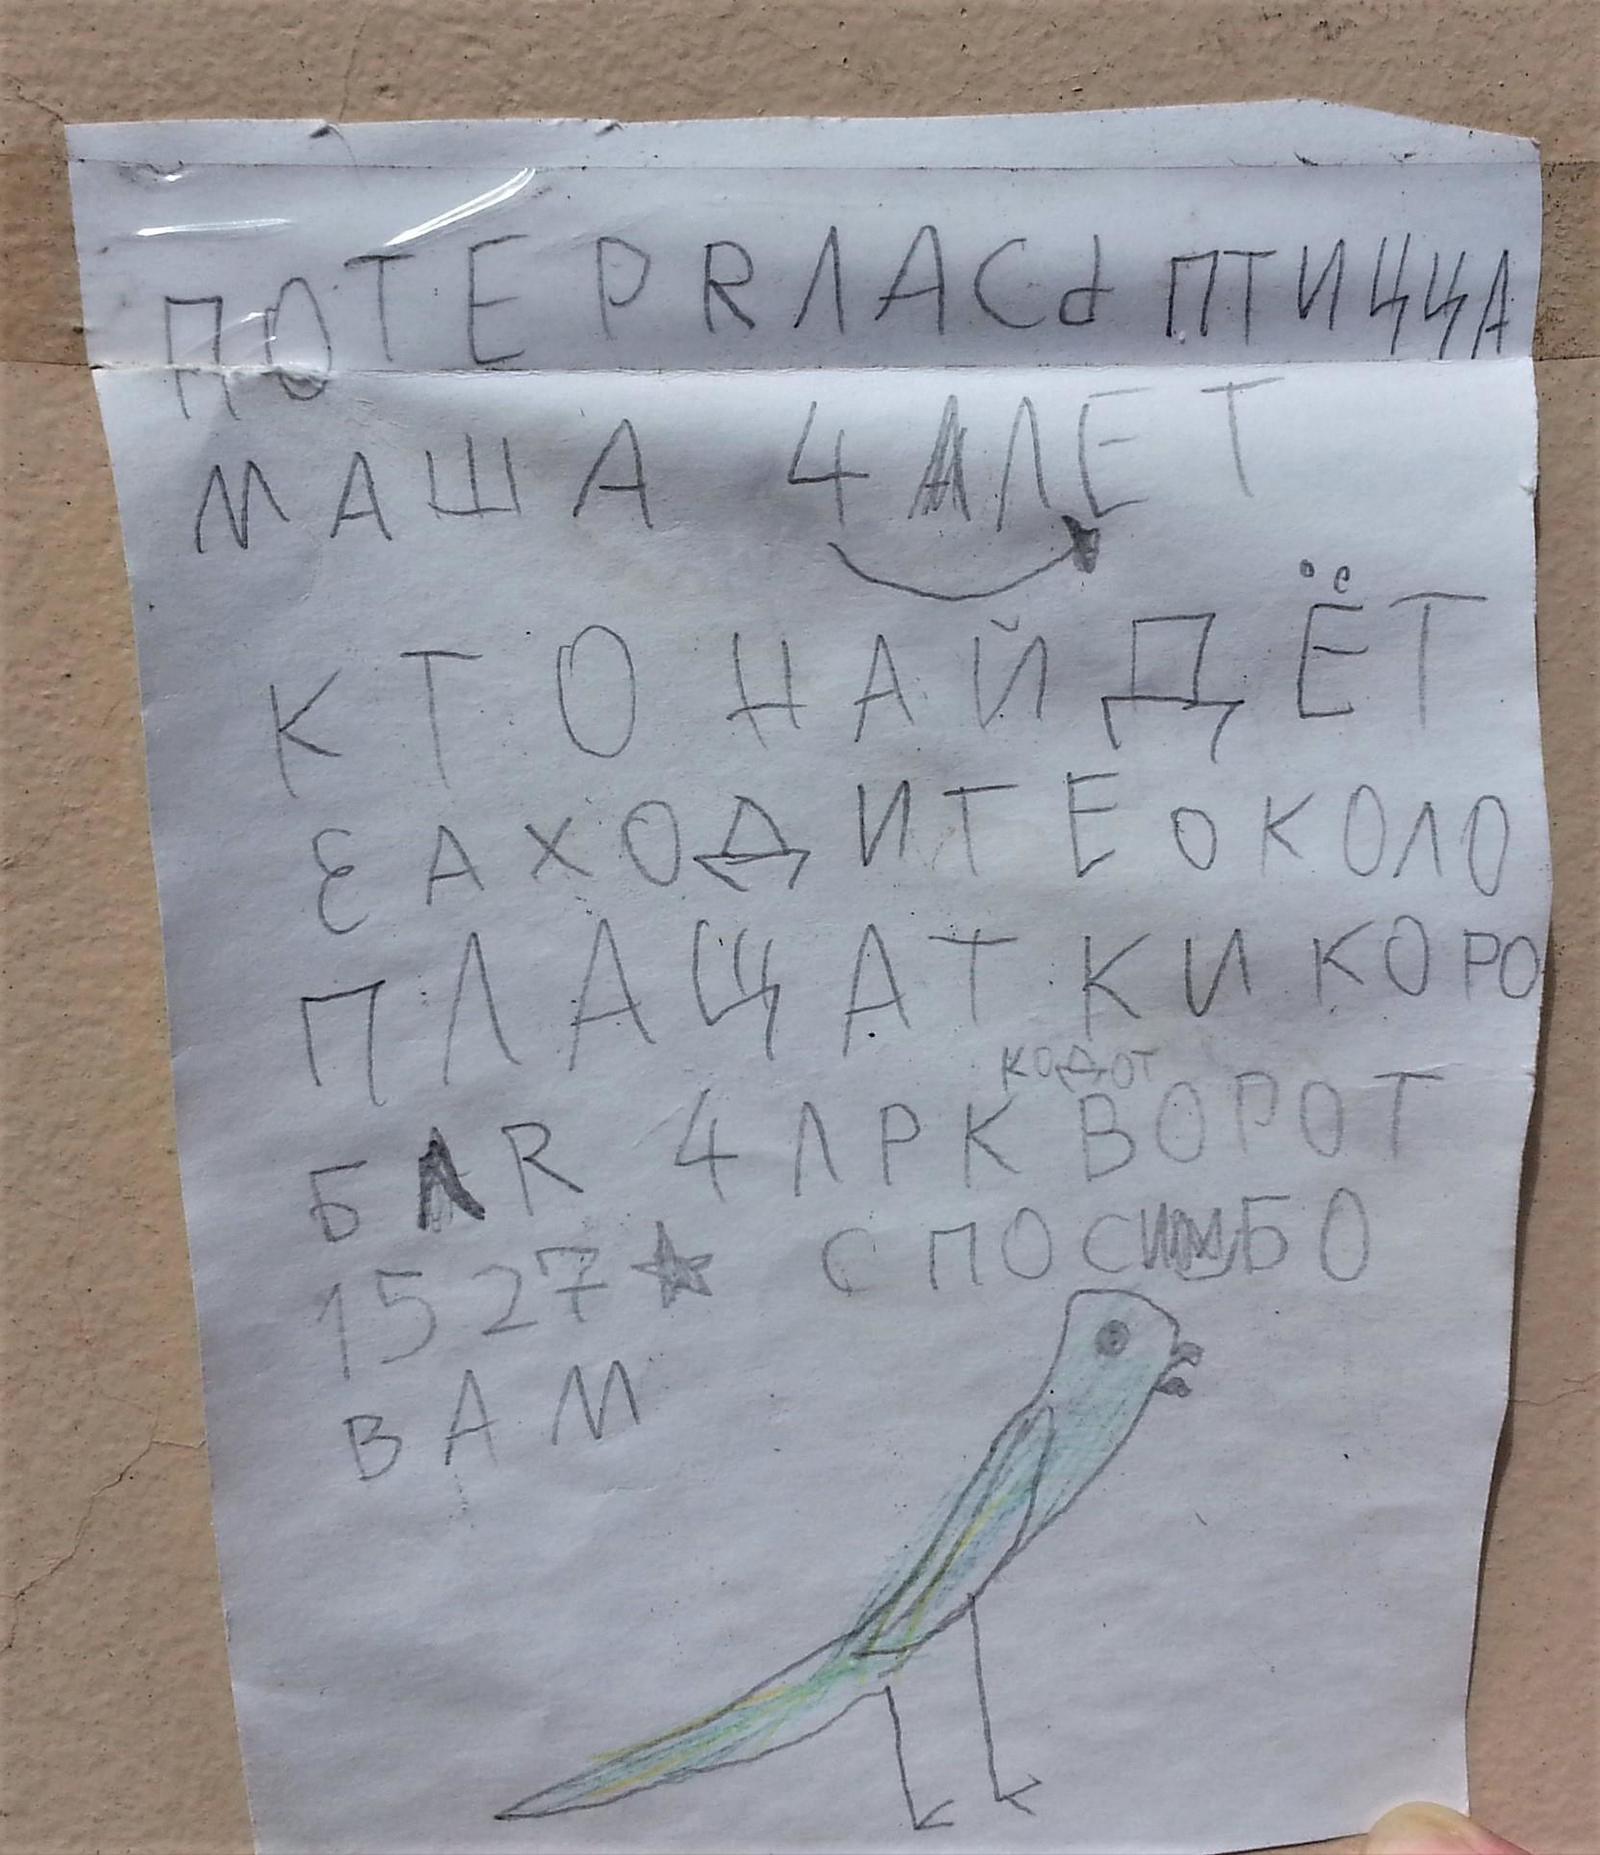 ПОТЕРЯЛАСЬ ПТИЦЦА
МАША 4 ЛЕТ
КТО НАЙДЁТ
ЗАХОДИТЕ ОКОЛО
ПЛАЩАТКИ КОРО
БЛЯ 4 ЛРК КОДОТ ВОРОТ
1527★ СПОСИБО
ВАМ